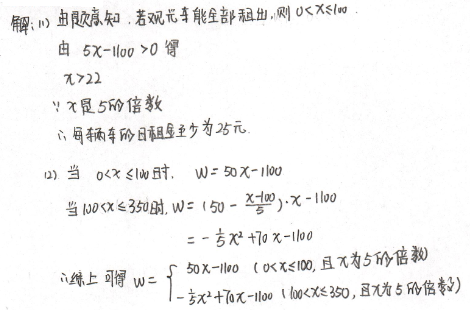 解:(1) 由题意知,若观光车能全部租出,则 0<x≤100.
由 5x-1100>0 得
x>22
∵ x是5的倍数
∴ 每辆车的日租金至少为25元.
(2) 当 0<x≤100时, W=50x-1100
当100<x≤350时, W=(50-\frac{x-100}{5})·x-1100
=-\frac{1}{5}x²+70x-1100
∴综上可得 W={ 50x-1100 (0<x≤100, 且x为5的倍数)
-\frac{1}{5}x²+70x-1100 (100<x≤350, 且x为5的倍数)